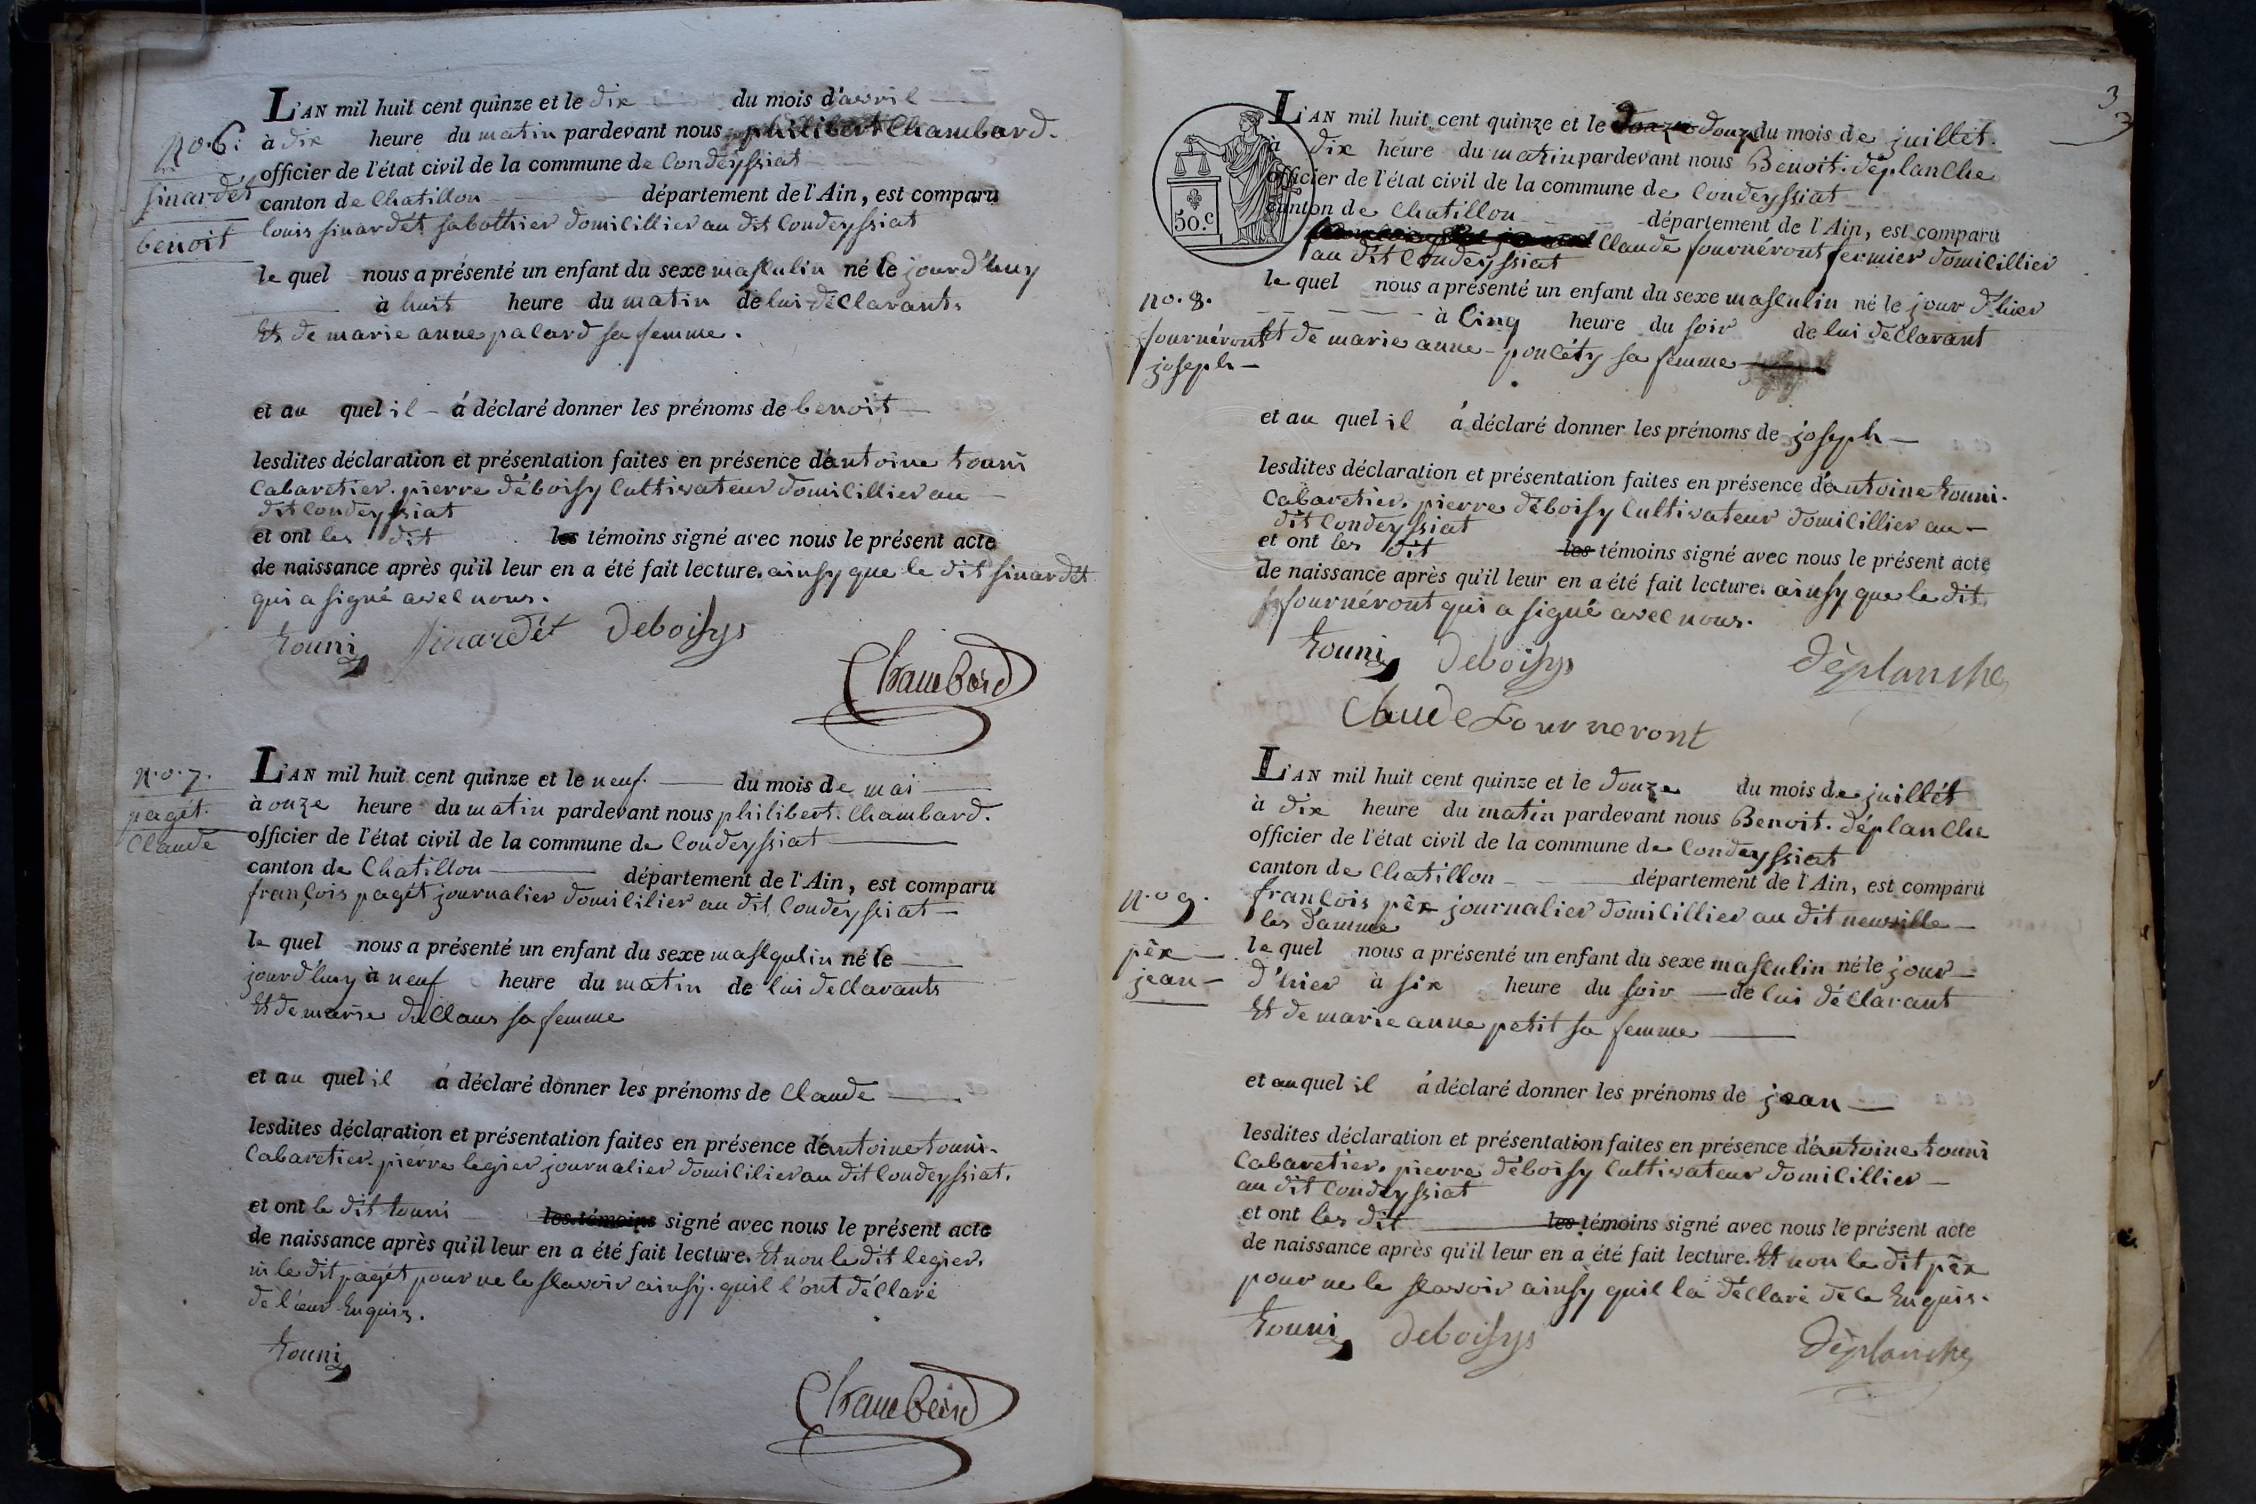 L'AN mil huit cent quinze et le dix du mois d'avril
no. 6. à dix heure du matin pardevant nous philibert Chambard.
officier de l'état civil de la commune de Condeyssiat
sinardét canton de Chatillon département de l'Ain, est comparu
benoit louis sinardét sabottier domicillier au dit Condeyssiat
le quel nous a présenté un enfant du sexe masculin né le jourd'huy
à huit heure du matin de lui déclarants
Et de marie anne palard sa femme.
et au quel il à déclaré donner les prénoms de benoit
lesdites déclaration et présentation faites en présence d'antoine touni
Cabaretier. pierre déboisy Cultivateur domicillier au
dit Condeyssiat
et ont les dit les témoins signé avec nous le présent acte
de naissance après qu'il leur en a été fait lecture. ainsy que le dit sinardét
qui a signé avec nous.
touni sinardét deboisys
Chambard
n.o.7. L'AN mil huit cent quinze et le neuf. du mois de mai
pagét. à onze heure du matin pardevant nous philibert. Chambard.
Claude officier de l'état civil de la commune de Condeyssiat
canton de Chatillon département de l'Ain, est comparu
françois pagét journalier domicilier au dit Condeyssiat
le quel nous a présenté un enfant du sexe masqulin né le
jourd'huy à neuf heure du matin de lui declarants
Et de marie duclaus sa femme
et au quel il à déclaré donner les prénoms de Claude
lesdites déclaration et présentation faites en présence d'antoine touni
Cabaretier. pierre legier journalier domicilier au dit Condeyssiat.
et ont le dit touni les témoins signé avec nous le présent acte
de naissance après qu'il leur en a été fait lecture. Et non le dit legier.
ni le dit pagét pour ne le scavoir ainsy. quil l'ont déclaré
de l'eur Enquis.
touni
Chambard
3
3
L'AN mil huit cent quinze et le douze du mois de juillet.
à dix heure du matin pardevant nous Benoit. déplanche
officier de l'état civil de la commune de Condeyssiat
50.c canton de Chatillon département de l'Ain, est comparu
Claude fournéront fermier domicillier
au dit Condeyssiat
le quel nous a présenté un enfant du sexe masculin né le jour d'hier
no. 8. à Cinq heure du soir de lui déclarant
fournéront Et de marie anne poncéty sa femme
joseph
et au quel il à déclaré donner les prénoms de joseph
lesdites déclaration et présentation faites en présence d'antoine touni.
Cabaretier. pierre déboisy Cultivateur domicillier au
dit Condeyssiat
et ont les dit les témoins signé avec nous le présent acte
de naissance après qu'il leur en a été fait lecture. ainsy que le dit
fournéront qui a signé avec nous.
touni deboisys déplanche
Claude Fourneront
L'AN mil huit cent quinze et le douze du mois de juillét
à dix heure du matin pardevant nous Benoit. déplanche
officier de l'état civil de la commune de Condeyssiat
canton de Chatillon département de l'Ain, est comparu
n.o 9. françois pêx journalier domicillier au dit neuville
les damme
pêx le quel nous a présenté un enfant du sexe masculin né le jour
jean d'hier à six heure du soir de lui déclarant
Et de marie anne petit sa femme
et au quel il à déclaré donner les prénoms de jean
lesdites déclaration et présentation faites en présence d'antoine touni
Cabaretier. pierre déboisy Cultivateur domicillier
au dit Condeyssiat
et ont les dit les témoins signé avec nous le présent acte
de naissance après qu'il leur en a été fait lecture. Et non le dit pêx
pour ne le scavoir ainsy quil la déclaré de ce Enquis.
touni deboisys déplanche